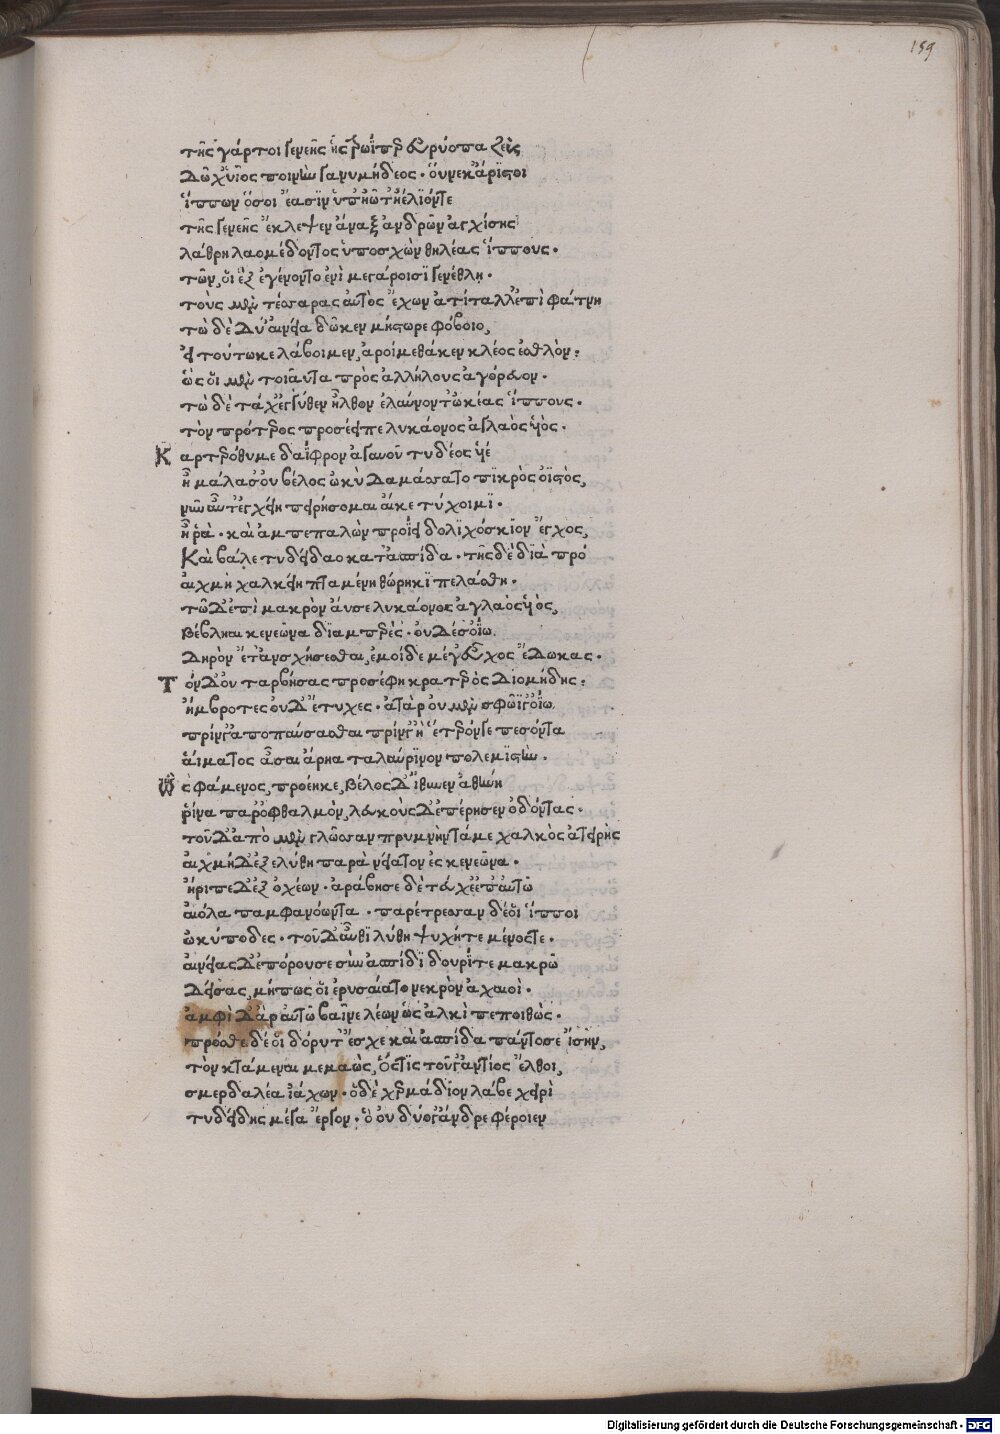 159
τῆς γάρ τοι γενεῆς ἧς τρωΐ περ εὐρύοπα ζεὺς
δῶχ' υἷος ποινὴν γανυμήδεος· οὕνεκ' ἄριστοι
ἵππων ὅσοι ἔασϊν ὑπ' ἠῶ τ' ἠέλϊόν τε
τῆς γενεῆς ἔκλεψεν ἄναξ ἀνδρῶν ἀγχίσης
λάθρη λαομέδοντος ὑποσχὼν θηλέας ἵππους.
τῶν, οἱ ἓξ ἐγένοντο ἐνὶ μεγάροισϊ γενέθλη.
τοὺς μὲν τέσσαρας αὐτὸς ἔχων ἀτίταλλ' ἐπὶ φάτνη
τὼ δὲ δύ' αἰνεία δῶκεν μήστωρε φόβοιο,
εἰ τούτω κε λάβοιμεν, ἀροίμεθά κεν κλέος ἐσθλόν:
ὣς οἱ μὲν τοιαῦτα πρὸς ἀλλήλους ἀγόρευον.
τὼ δὲ τάχ' ἐγγύθεν ἦλθον ἐλαύνοντ' ὠκέας ἵππους.
τὸν πρότερος προσέειπε λυκάονος ἀγλαὸς υἱός.
Καρτερόθυμε δαΐφρον ἀγαυοῦ τυδέος υἱέ
ἦ μάλα σ' οὐ βέλος ὠκὺ δαμάσσατο πϊκρὸς ὀϊστός,
νῦν αὖτ' ἐγχείη πειρήσομαι αἴ κε τύχοιμϊ.
ἦ ῥὰ· καὶ ἀμπεπαλὼν προΐει δολϊχόσκϊον ἔγχος,
Καὶ βάλε τυδείδαο κατ' ἀσπίδα· τῆς δὲ δϊὰ πρό
αἰχμὴ χαλκείη πταμένη θώρηκϊ πελάσθη.
τῶ δ' ἐπὶ μακρὸν ἄυσε λυκάονος ἀγλαὸς υἱός,
βέβληαι κενεῶνα δϊαμπερὲς· οὐδέ σ' ὀΐω
δηρὸν ἔτ' ἀνσχήσεσθαι, ἐμοὶ δε μέγ' εὖχος ἔδωκας.
Τὸν δ' οὐ ταρβήσας προσέφη κρατερὸς διομήδης:
ἤμβροτες οὐδ' ἔτυχες· ἀτὰρ οὐ μὲν σφῶϊ γ' ὀΐω
πρίν γ' ἀποπαύσασθαι πρίν γ' ἢ ἕτερόν γε πεσόντα
αἵματος ἆσαι ἄρηα ταλαύρϊνον πολεμϊστὴν.
Ὣς φάμενος, προέηκε, βέλος δ' ἴθυνεν ἀθήνη
ῥίνα παρ' ὀφθαλμὸν, λευκοὺς δ' ἐπέρησεν ὀδόντας.
τοῦ δ' ἀπὸ μὲν γλῶσσαν πρυμνὴν τάμε χαλκὸς ἀτειρὴς
αἰχμὴ δ' ἐξελύθη παρὰ νείατον ἐς κενεῶνα.
ἤριπε δ' ἐξ ὀχέων· ἀράβησε δὲ τεύχε' ἐπ' αὐτῶ
αἰόλα παμφανόωντα· παρέτρεσσαν δέ οἱ ἵπποι
ὠκύποδες· τοῦ δ' αὖθϊ λύθη ψυχή τε μένος τε.
αἰνείας δ' ἐπόρουσε σὺν ἀσπίδϊ δουρΐ τε μακρῶ
δείσας, μή πως οἱ ἐρυσαίατο νεκρὸν ἀχαιοὶ.
ἀμφὶ δ' ἂρ αὐτῶ βαῖνε λέων ὣς ἀλκὶ πεποιθὼς.
πρόσθε δέ οἱ δόρυ τ' ἔσχε καὶ ἀσπίδα πάντοσε ἴσην,
τὸν κτάμεναι μεμαὼς, ὅστϊς τοῦ γ' ἀντίος ἔλθοι,
σμερδαλέα ἰάχων· ὃ δὲ χερμάδϊον λάβε χειρὶ
τυδείδης μέγα ἔργον· ὃ οὐ δύο γ' ἄνδρε φέροιεν
Digitalisierung gefördert durch die Deutsche Forschungsgemeinschaft - DFG